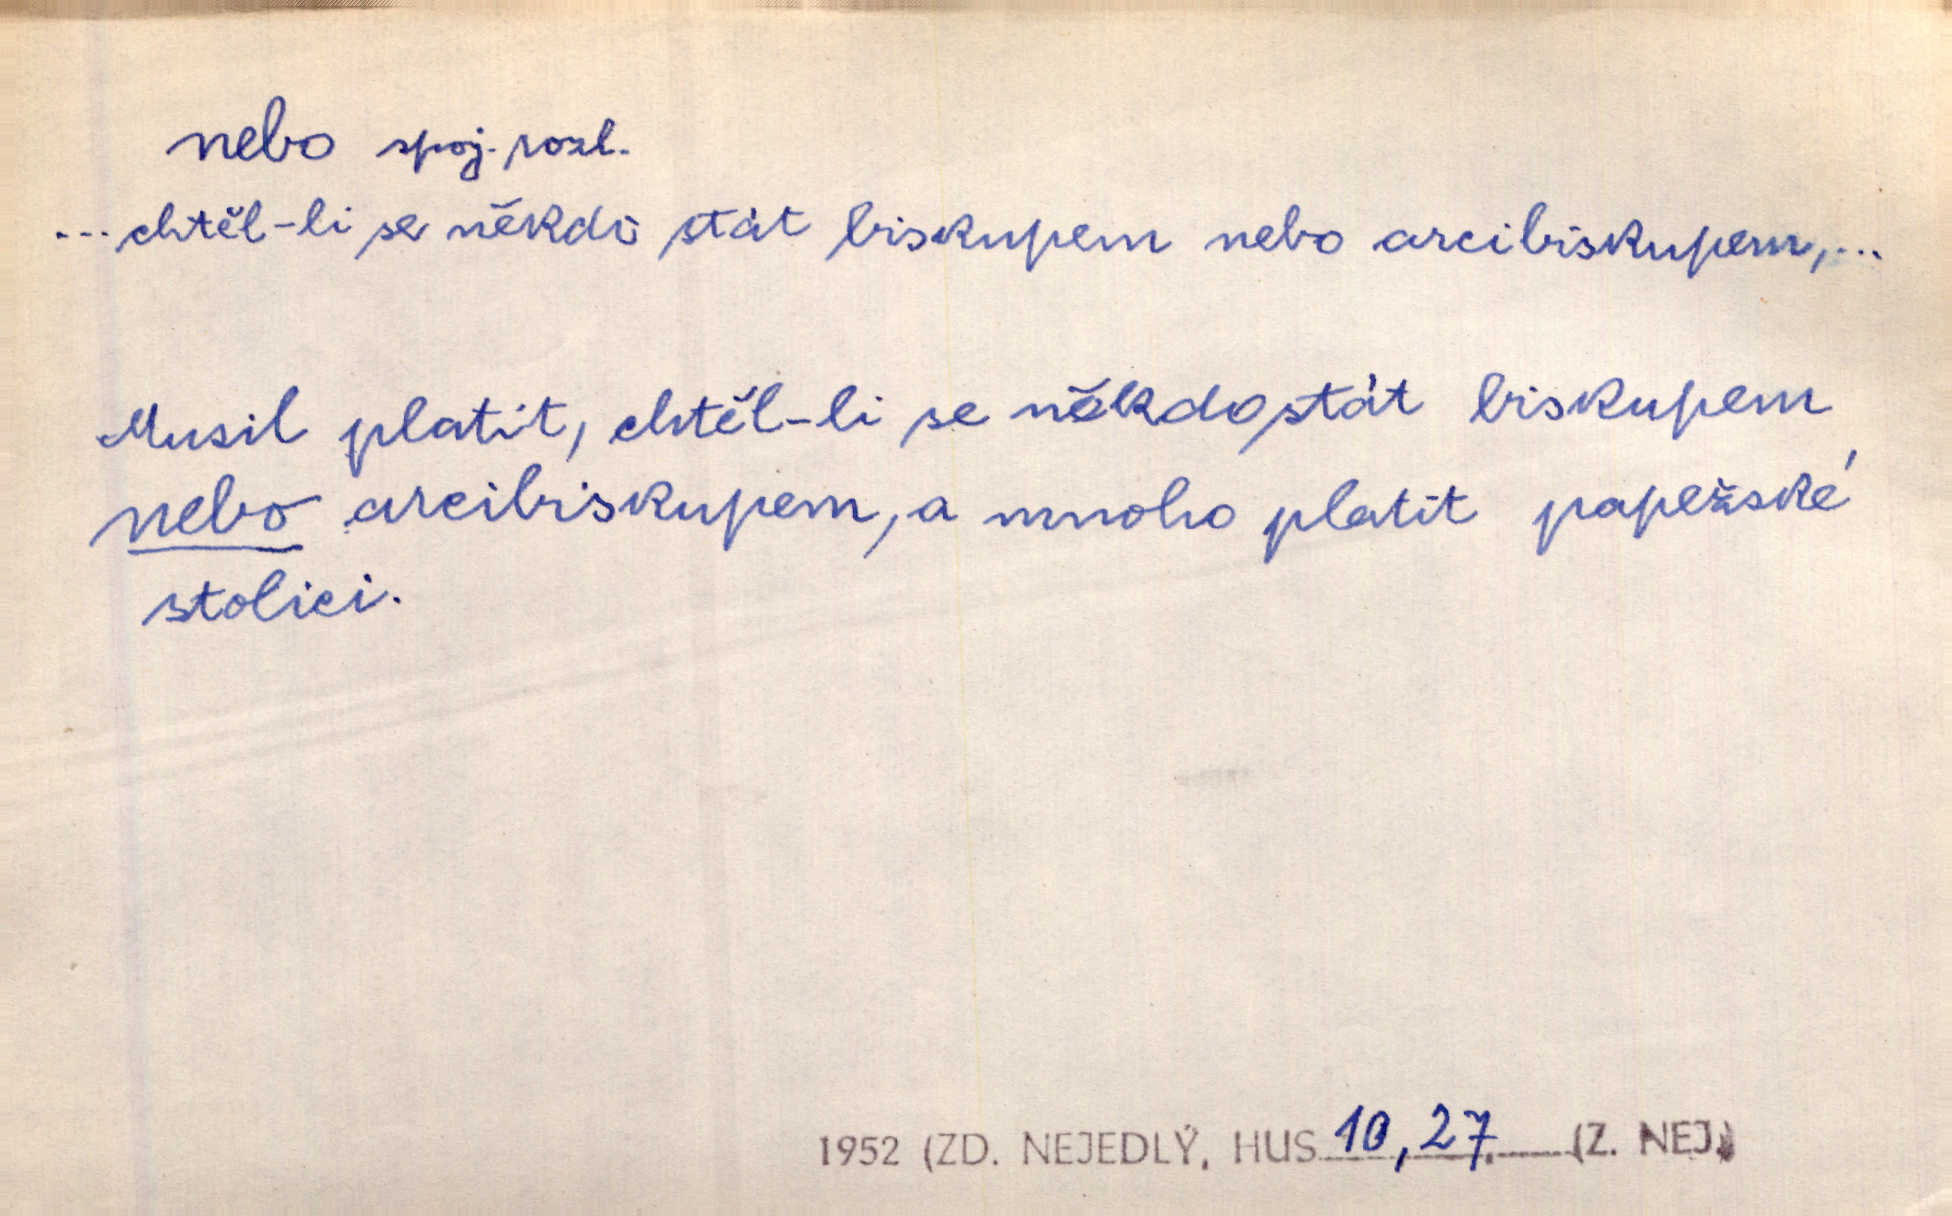 nebo spoj. rozl.
...chtěl-li se někdo stát biskupem nebo arcibiskupem,...
Musil platit, chtěl-li se někdo stát biskupem
nebo arcibiskupem, a mnoho platit papežské
stolici.
1952 (ZD. NEJEDLÝ, HUS 10, 27. (Z. NEJ.)